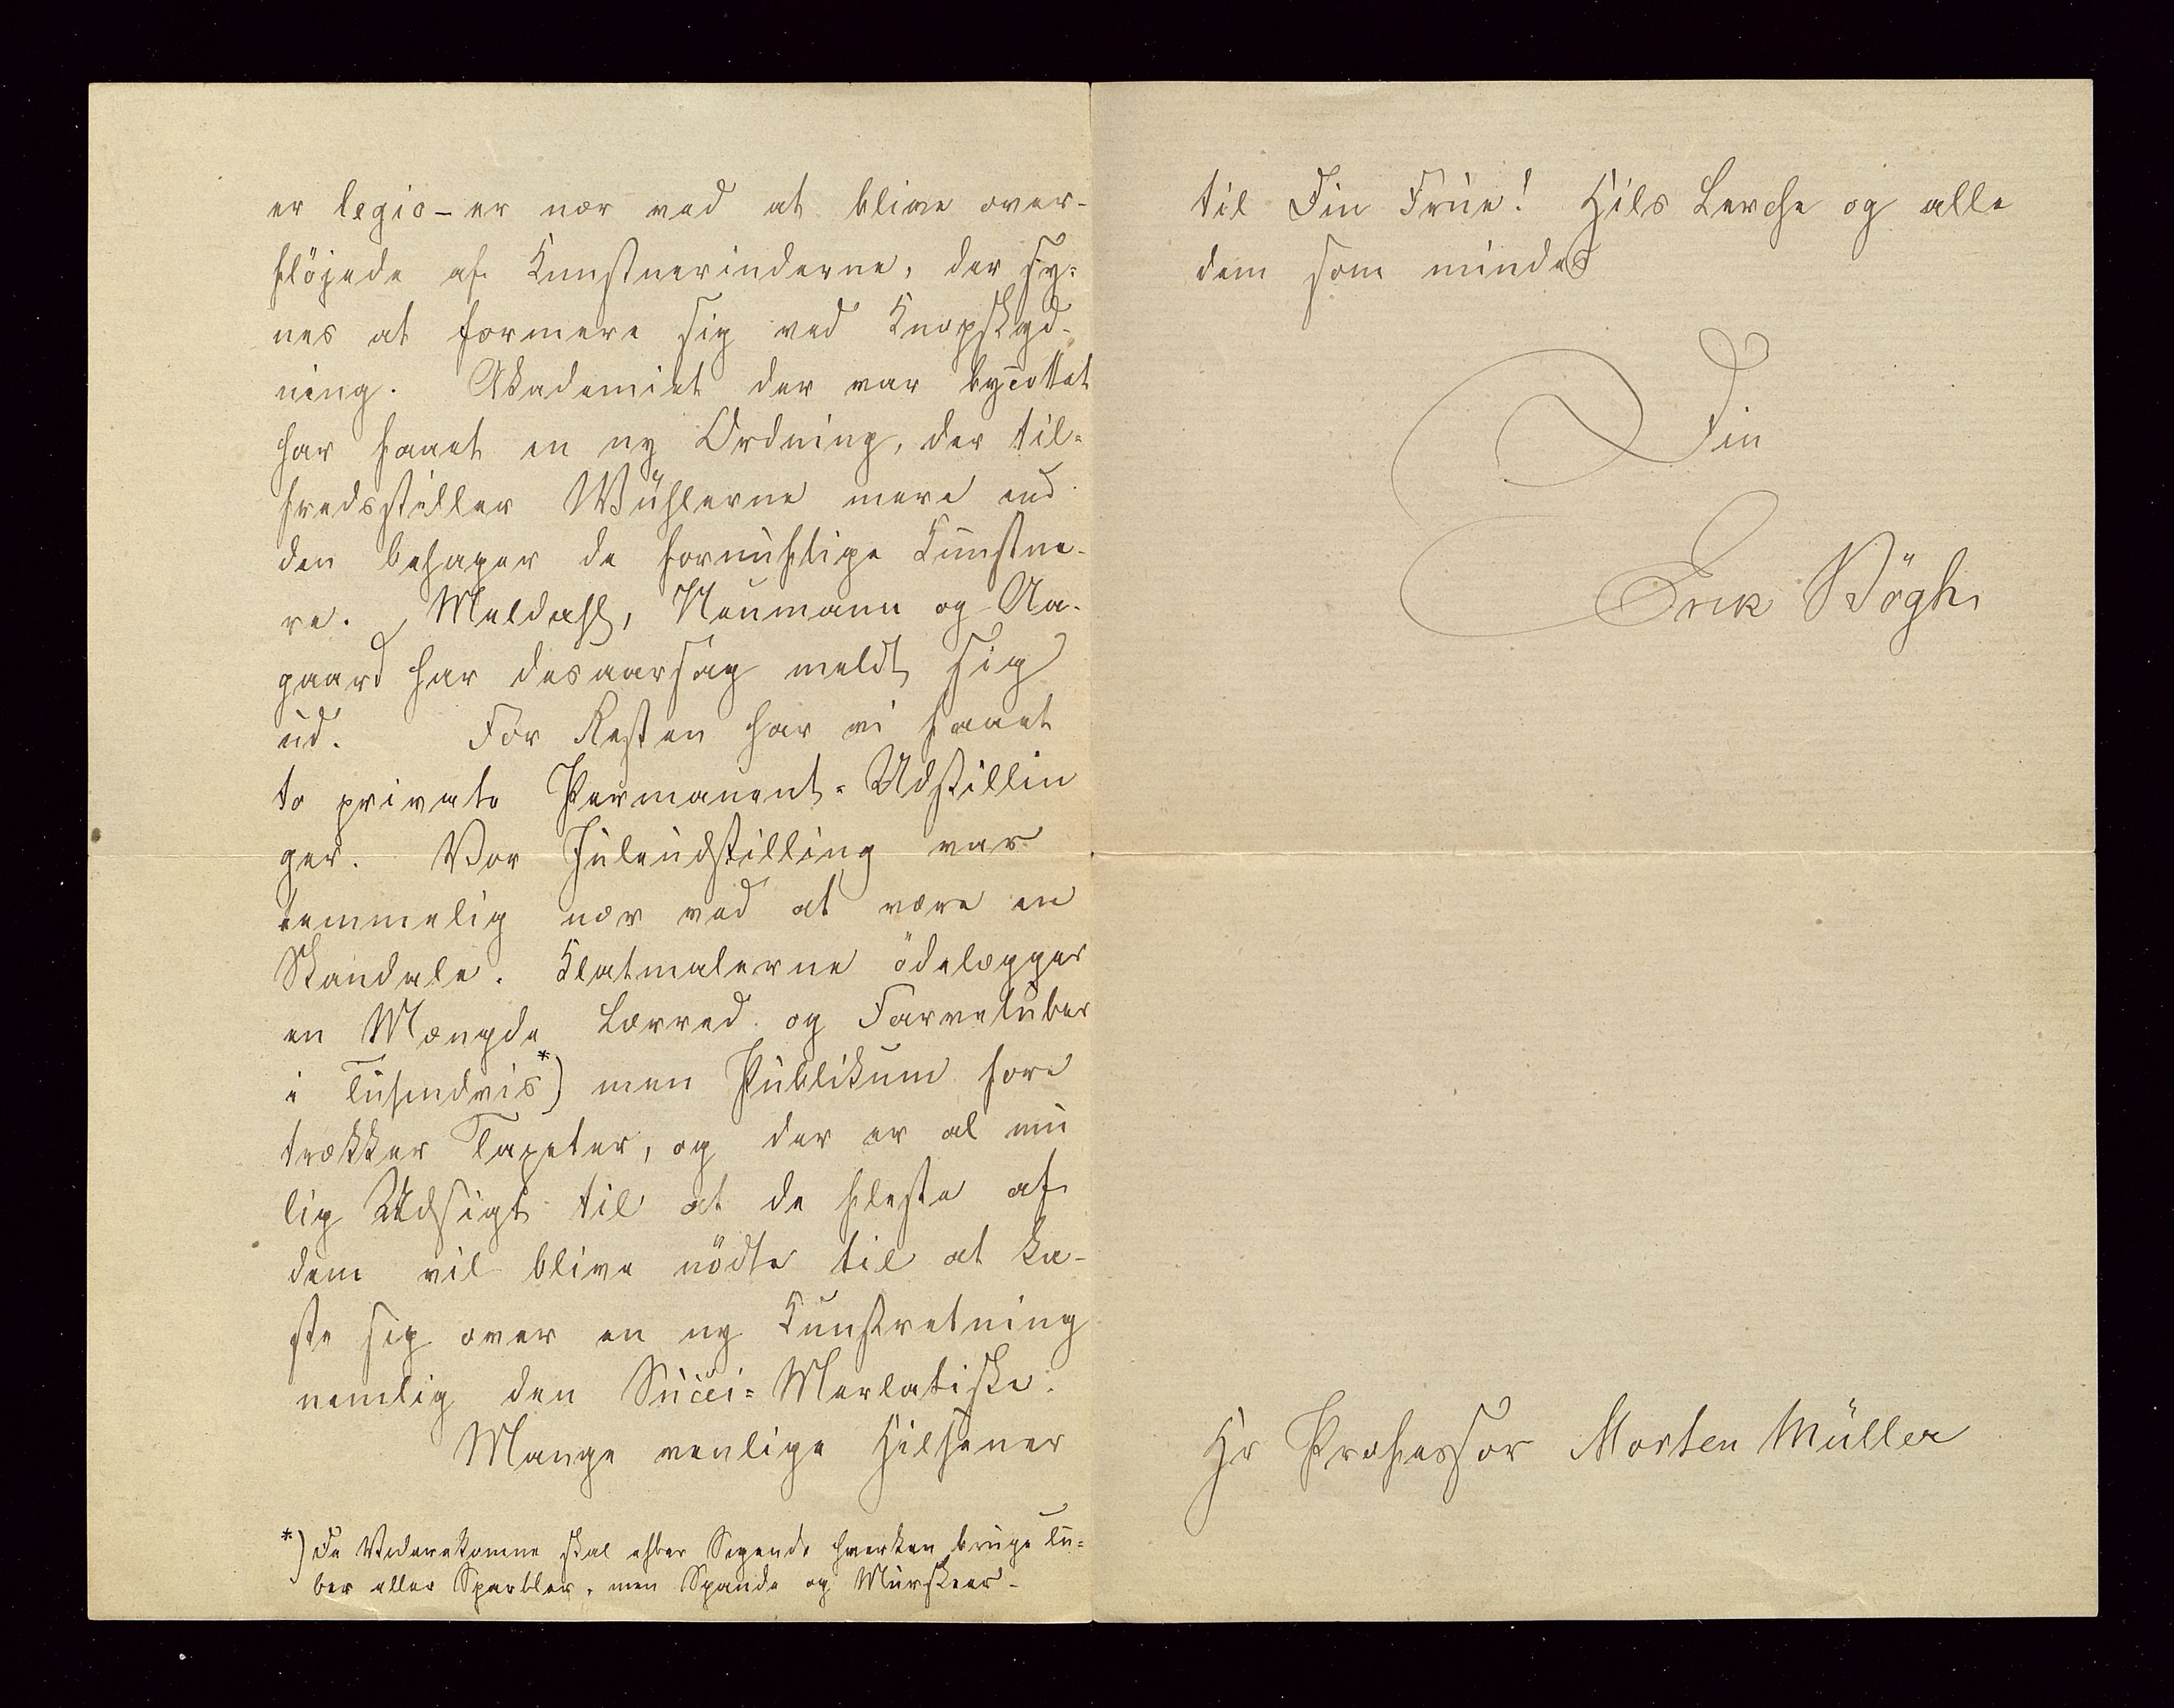 er legio – er nær ved at blive over-
fløjede af Kunstnerinderne, der sy-
nes at formere sig ved Knopskyd-
ning. Akademiet der var bycottet
har faaet en ny Ordning, der til-
fredsstiller Wühlerne mere end
den behager de fornuftige Kunstne-
re. Meldahl, Neumann og Aa-
gaard har desaarsag meldt sig
ud. For Resten har vi faaet
to private Permanent-Udstillin
ger. Vor Juleudstilling var
temmelig nær ved at være en
Skandale. Klatmalerne ödelægger
en Mængde Lærred og Farvetuber
i Tusindvis*) men Publikum fore
trækker Tapeter, og der er al mu
lig Udsigt til at de fleste af
dem vil blive nödte til at ka-
ste sig over en ny Kunstretning
nemlig den Succi-Merlatiske.
Mange venlige Hilsener
*) De Viderekomne skal efter Sigende hverken bruge Tu-
ber eller Spartler, men Spande og Murskeer-
til Din Frue! Hils Lerche og alle
dem som mindes
Din
Erik Bögh
Hr Professor Morten Müller